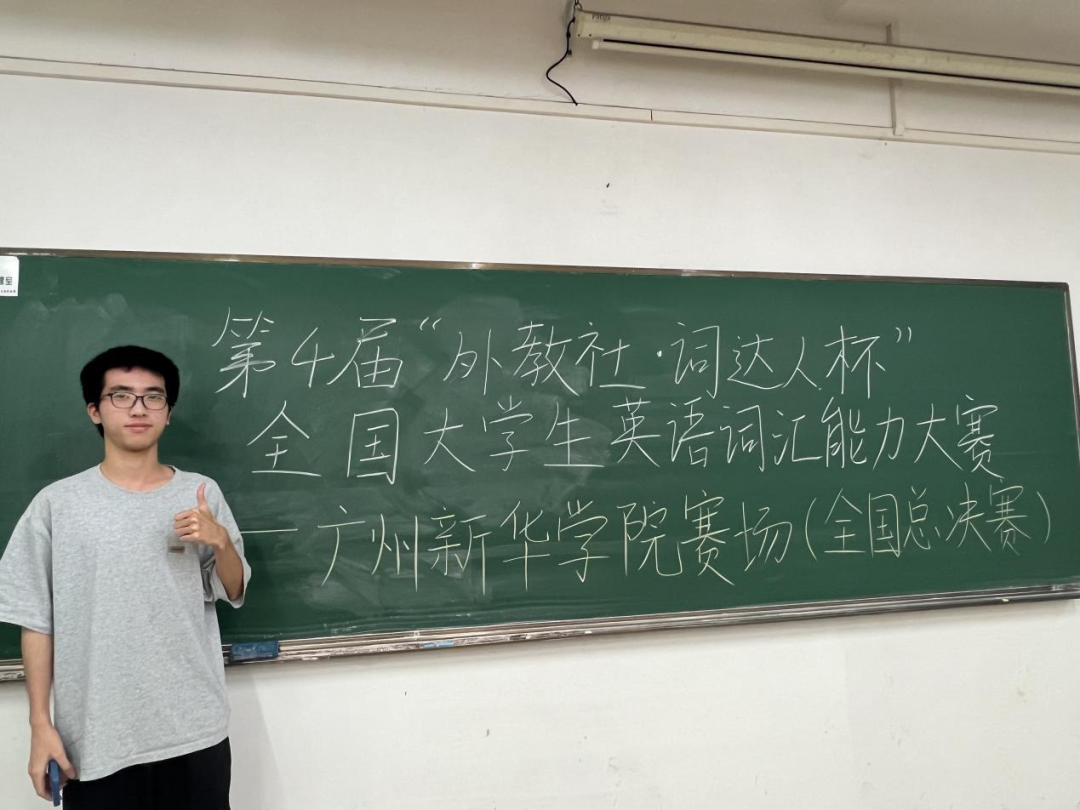 第4届“外教社·词达人杯”
全国大学生英语词汇能力大赛
—广州新华学院赛场(全国总决赛)